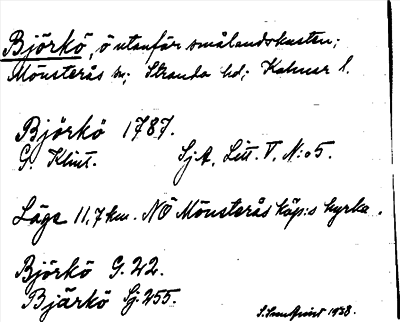 Björkö, ö utanför smålandskusten;
Mönsterås sn; Stranda hd; Kalmar l.
Björkö 1787.
G. Klint. SjA, Litt. V, N:o 5.
Läge 11,7 km. NÖ Mönsterås köp:s kyrka.
Björkö G. 22.
Bjärkö Sj. 255.
1938.